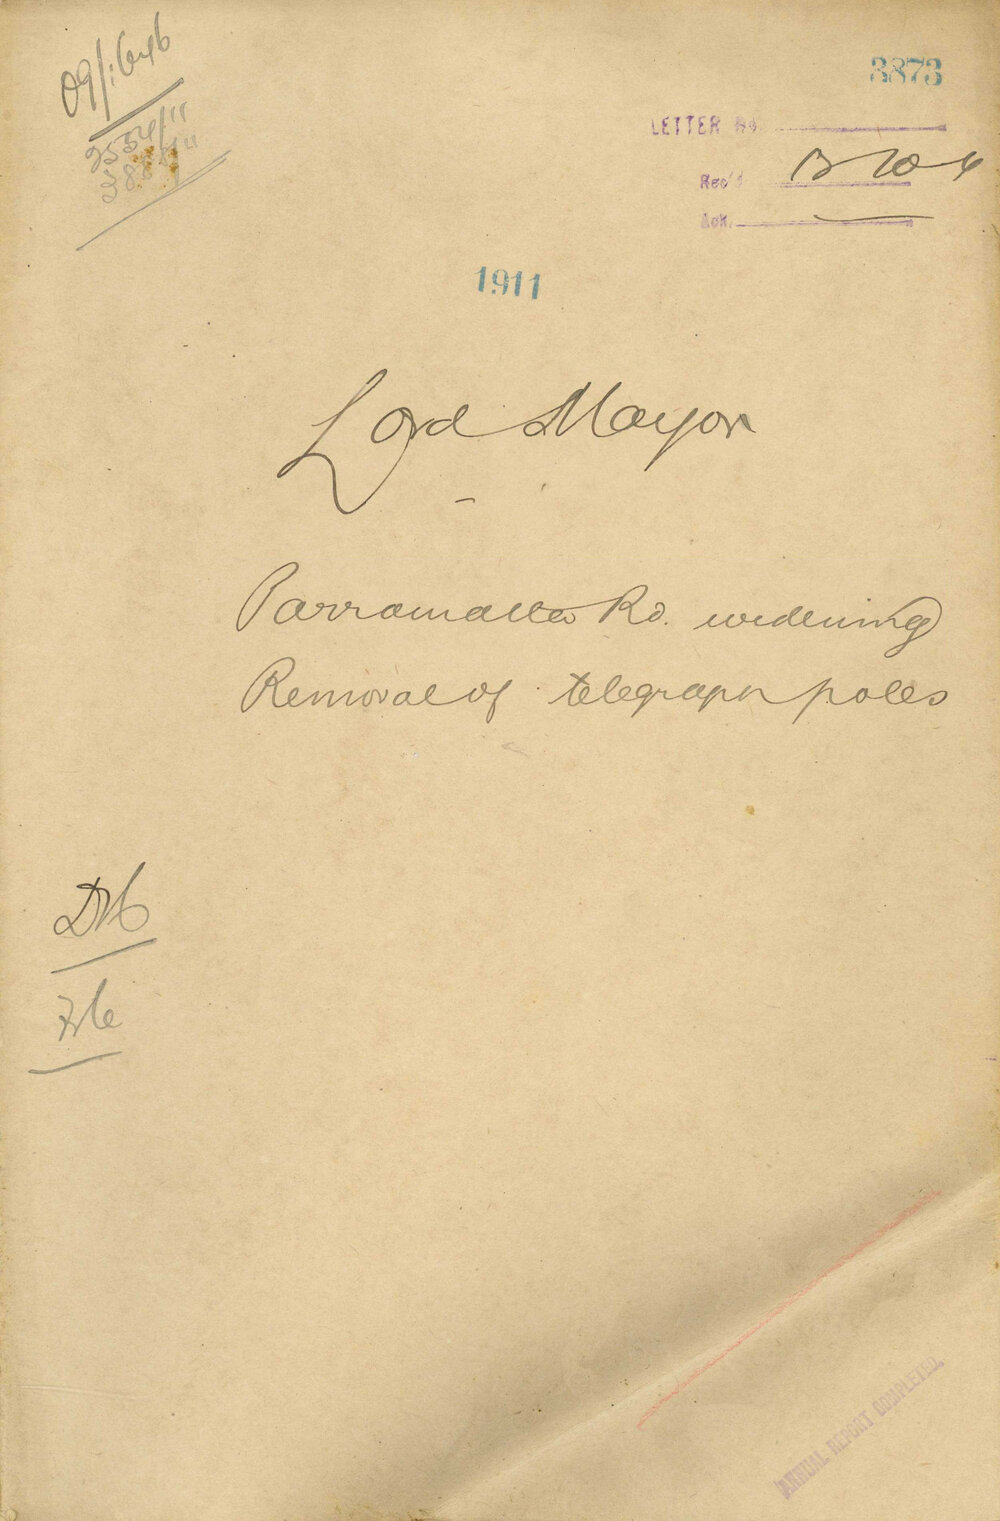 3873
LETTER No.
Rec'd
Ack.
1911
Lord Mayor
Parramatta Rd. widening
Removal of telegraph poles
ANNUAL REPORT COMPLETED.